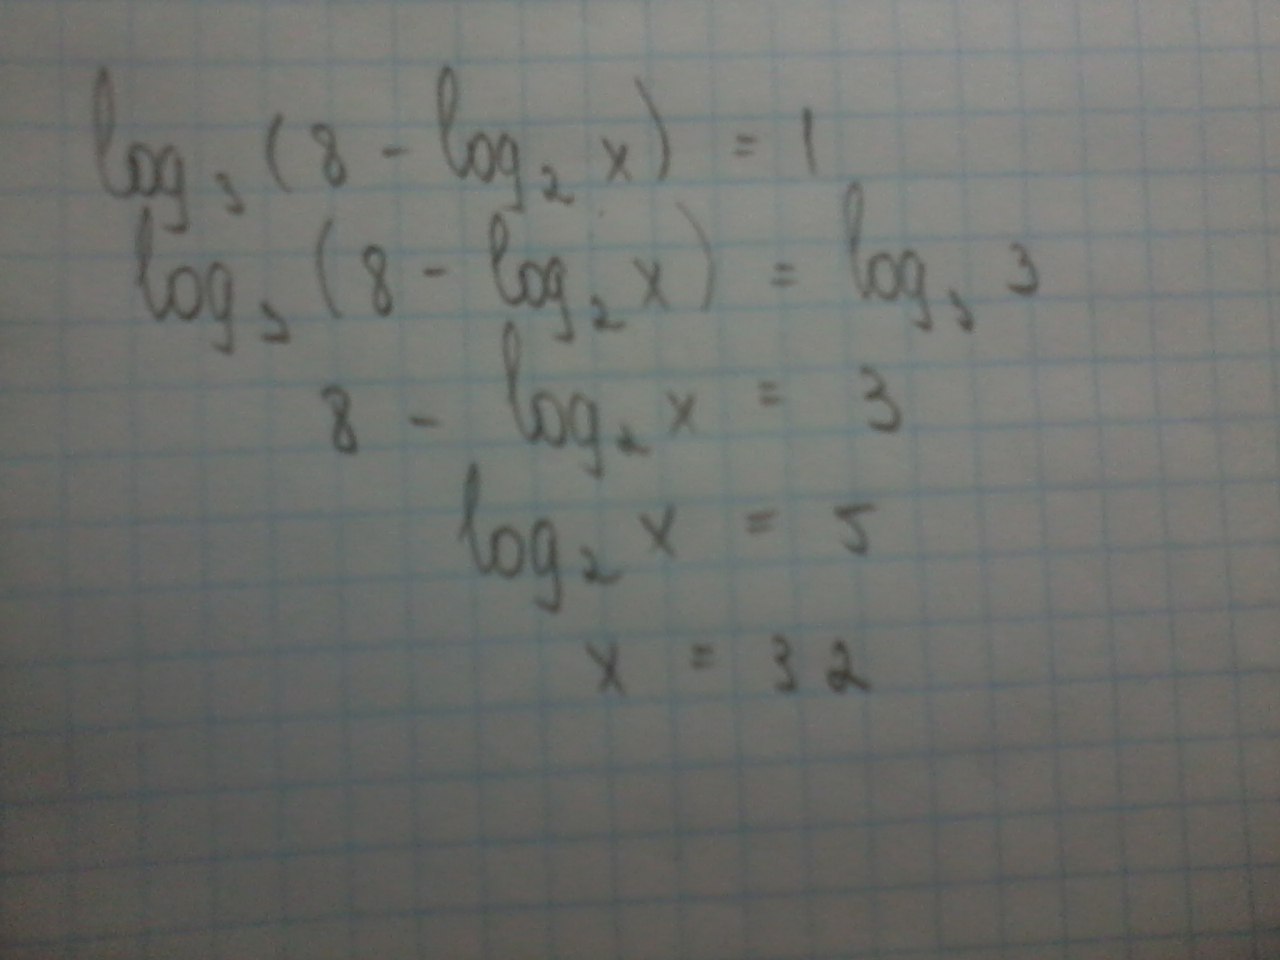 log₃ (8 - log₂ x) = 1
log₃ (8 - log₂ x) = log₃ 3
8 - log₂ x = 3
log₂ x = 5
x = 32